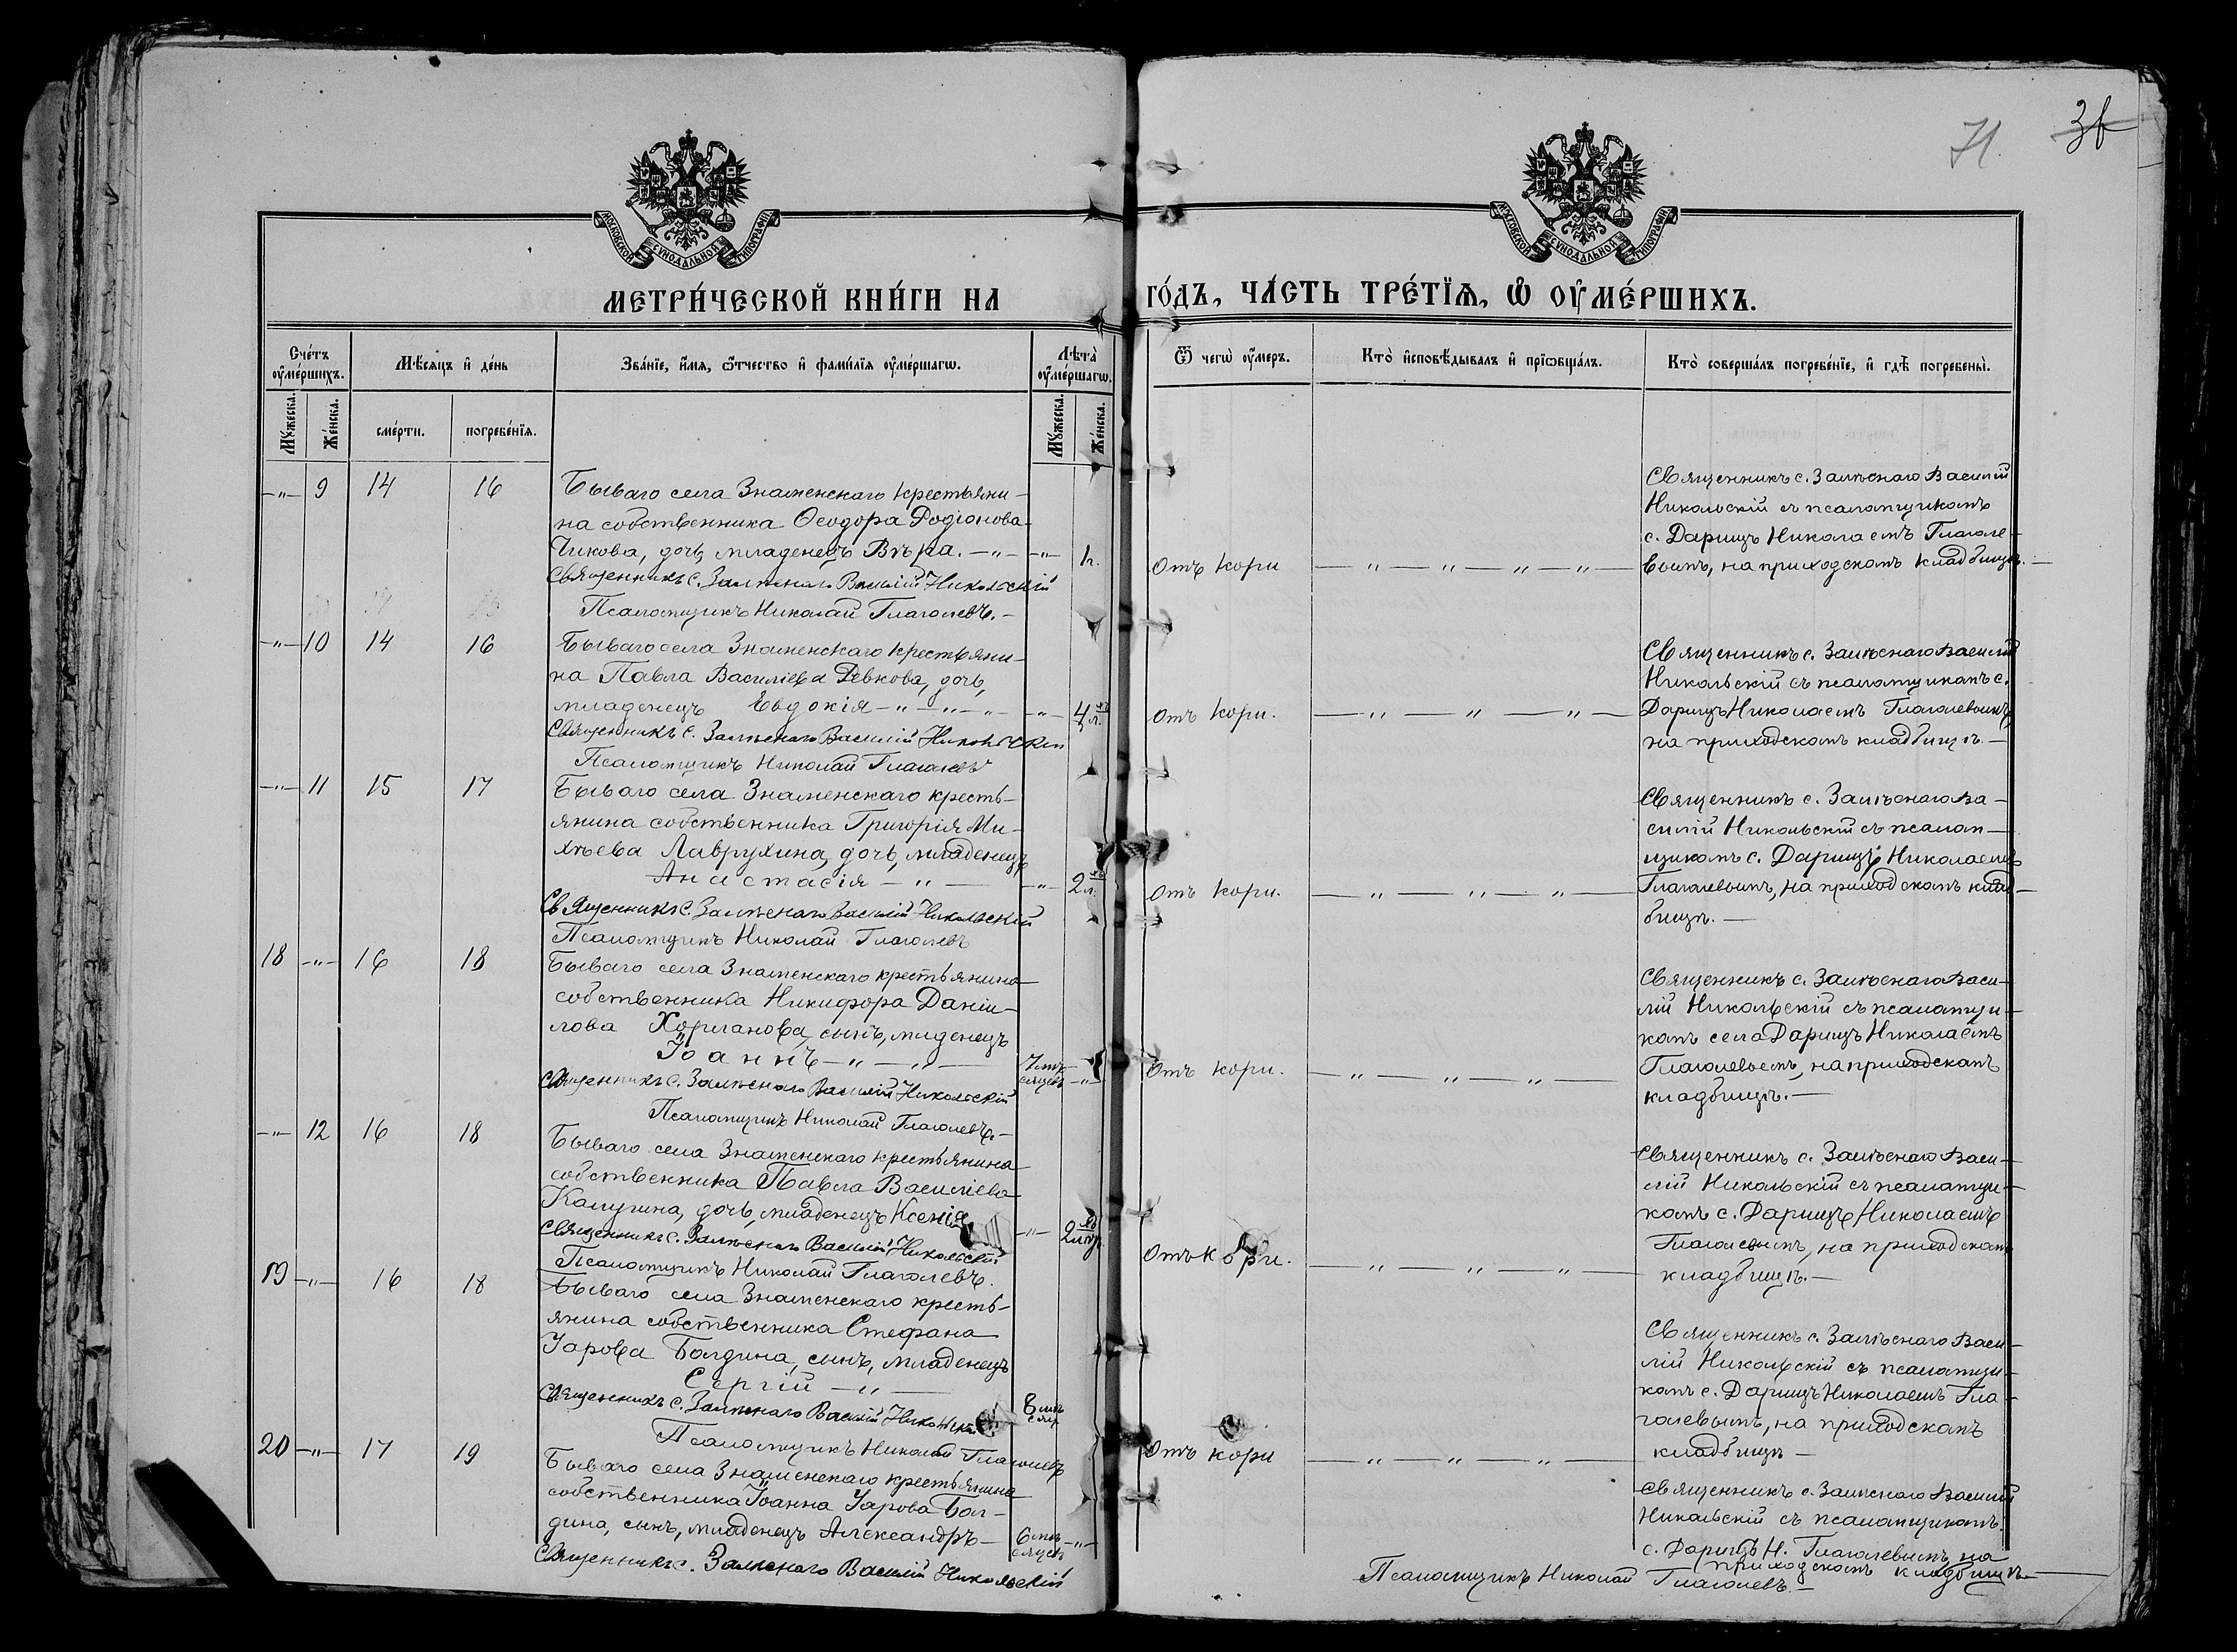 71
МОСКОВСКОЙ СУНОДАЛЬНОЙ ТИПОГРАФІИ
МОСКОВСКОЙ СУНОДАЛЬНОЙ ТИПОГРАФІИ
МЕТРИ́ЧЕСКОЙ КНИ́ГИ НА
ГО́ДЪ, ЧА́СТЬ ТРЕ́ТЇѦ, Ѡ҆ ОУ҆МЕ́РШИХЪ.
Сче́тъ оу҆ме́ршихъ.
Мѣ́сѧцъ и҆ де́нь
Зва́нїе, и҆́мѧ, ѻ҆́тчество и҆ фамилїѧ оу҆ме́ршагѡ.
Лѣта̀ оу҆ме́ршагѡ.
Ѿ чегѡ̀ оу҆́меръ.
Кто̀ и҆сповѣ́дывалъ и҆ прїѡбща́лъ.
Кто̀ соверша́лъ погребе́нїе, и҆ гдѣ̀ погребены̀.
Мꙋ́жеска.
Же́нска.
сме́рти.
погребе́нїѧ.
Мꙋ́жеска.
Же́нска.
-"- 9 14 16
Бываго села Знаменскаго крестьяни-
на собственника Ѳеодора Родіонова
Чикова, дочь, младенецъ Вѣра. -"- -"- 1 г.
Священникъ с. Залѣснаго Василій Никольскій
Псаломщикъ Николай Глаголевъ.-
Отъ кори
— " — " — " — " —
Священникъ с. Залѣснаго Василій
Никольскій съ псаломщикомъ
с. Дарищъ Николаемъ Глаголе-
вымъ, на приходскомъ кладбищѣ.—
-"- 10 14 16
Бываго села Знаменскаго крестьяни-
на Павла Василіева Ревкова, дочь,
младенецъ Евдокія -"-"-"- -"- 4 л.
Священникъ с. Залѣснаго Василій Никольскій
Псаломщикъ Николай Глаголевъ
Отъ кори.
— " — " — " —
Священникъ с. Залѣснаго Василій
Никольскій съ псаломщикомъ с.
Дарищъ Николаемъ Глаголевымъ,
на приходскомъ кладбищѣ.—
-"- 11 15 17
Бываго села Знаменскаго кресть-
янина собственника Григорія Ми-
хѣева Лаврухина, дочь, младенецъ
Анастасія -"- -"- 2 л.
Священникъ с. Залѣснаго Василій Никольскій
Псаломщикъ Николай Глаголевъ
Отъ кори.
— " — " — " —
Священникъ с. Залѣснаго Ва-
силій Никольскій съ псалом-
щикомъ с. Дарищъ Николаемъ
Глаголевымъ, на приходскомъ клад-
бищѣ.—
18 -"- 16 18
Бываго села Знаменскаго крестьянина
собственника Никифора Даніи-
лова Хорланова, сынъ, мла­денецъ
Іоаннъ -"-"- 7 мѣ-
сяцевъ -"-
Священникъ с. Залѣснаго Василій Никольскій
Псаломщикъ Николай Глаголевъ.-
Отъ кори.
— " — " — " —
Священникъ с. Залѣснаго Васи-
лій Никольскій съ псаломщи-
комъ села Дарищъ Николаемъ
Глаголевымъ, на приходскомъ
кладбищѣ.—
-"- 12 16 18
Бываго села Знаменскаго крестьянина
собственника Павла Василіева
Калугина, дочь, младенецъ Ксенія -"- 2
Священникъ с. Залѣснаго Василій Никольскій
Псаломщикъ Николай Глаголевъ.
Отъ кори.
— " — " — " —
Священникъ с. Залѣснаго Васи-
лій Никольскій съ псаломщи-
комъ с. Дарищъ Николаемъ
Глаголевымъ, на приходскомъ
кладбищѣ.—
19 -"- 16 18
Бываго села Знаменскаго кресть-
янина собственника Стефана
Уарова Болдина, сынъ, младенецъ
Сергій -"- 8 мѣ-
сяц.
Священникъ с. Залѣснаго Василій Никольскій
Псаломщикъ Николай Глаголевъ
Отъ кори
— " — " — " —
Священникъ с. Залѣснаго Васи-
лій Никольскій съ псаломщи-
комъ с. Дарищъ Николаемъ Гла-
голевымъ, на приходскомъ
кладбищѣ —
20 -"- 17 19
Бываго села Знаменскаго крестьянина
собственника Іоанна Уарова Бол-
дина, сынъ, младенецъ Александръ- 6 мѣ-
сяцевъ -"-
Священникъ с. Залѣснаго Василій Никольскій
Священникъ с. Залѣснаго Василій
Никольскій съ псаломщикомъ
с. Дарищъ Н. Глаголевымъ, на
приходскомъ кладбищѣ—
Псаломщикъ Николай Глаголевъ.—